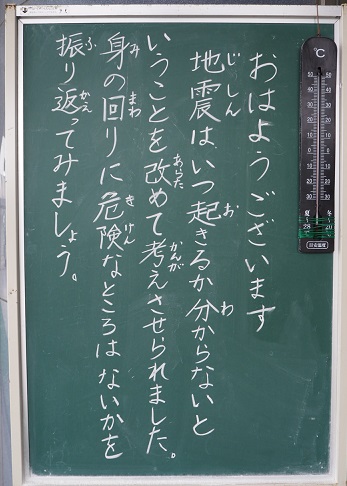 おはようございます
地震は、いつ起きるか分からないと
いうことを改めて考えさせられました。
身の回りに危険なところはないかを
振り返ってみましょう。
じしん
お
わ
あらた
かんが
み
まわ
きけん
ふ
かえ
℃
50
40
30
20
10
0
10
20
30
夏
28
冬
20